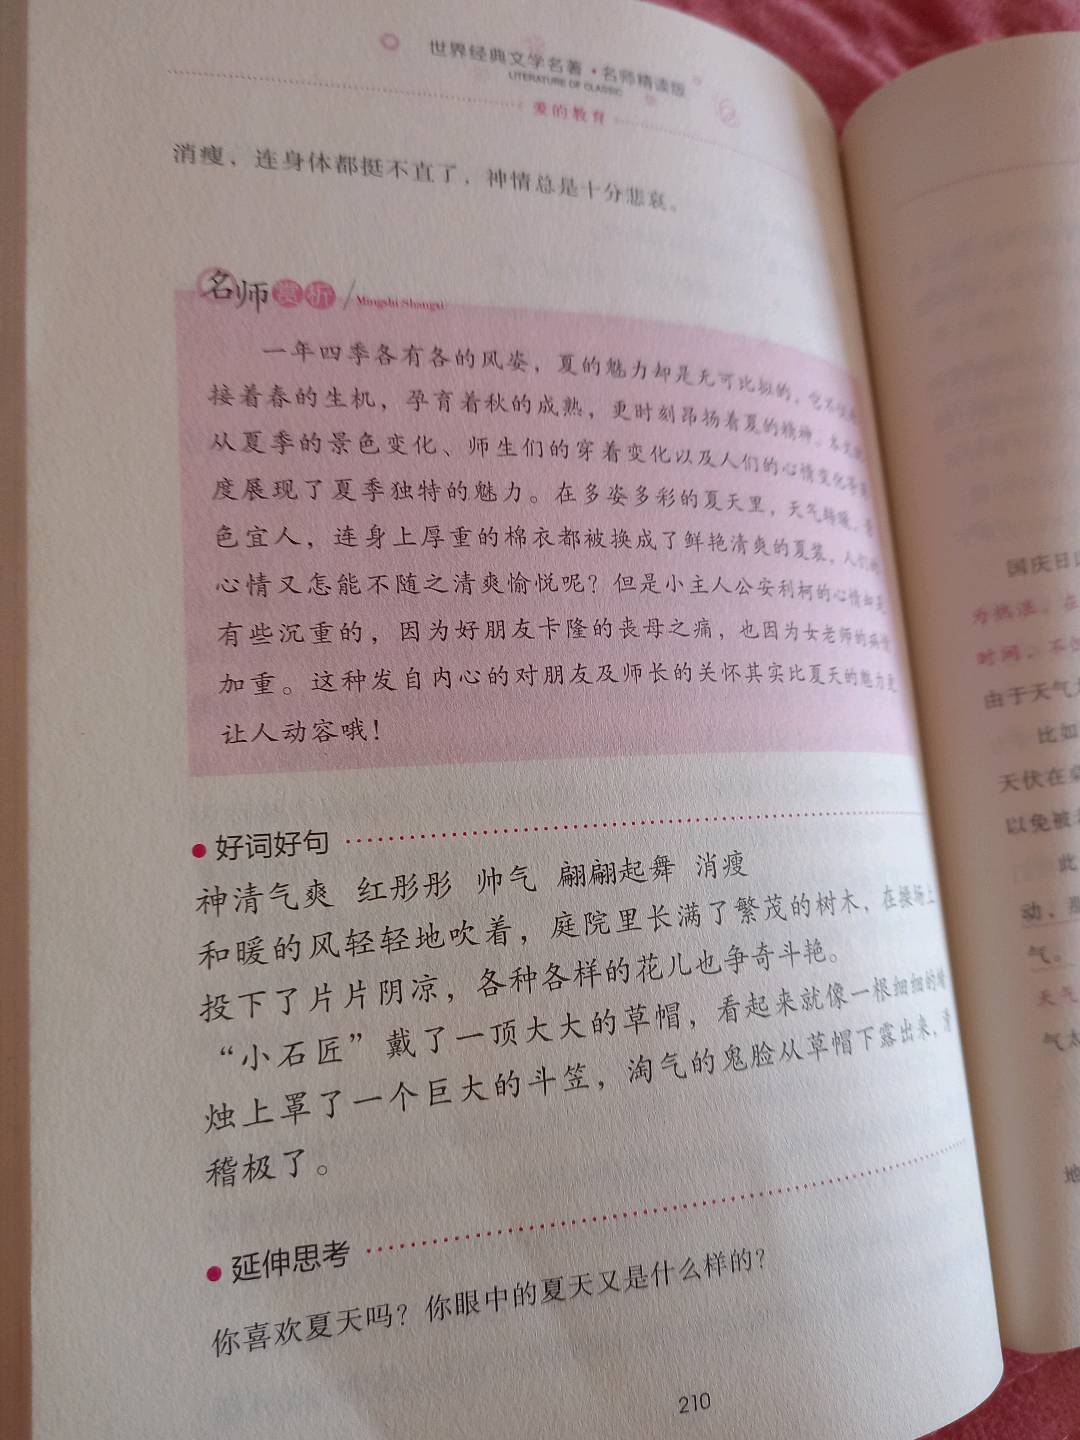 世界经典文学名著·名师精读版
LITERATURE OF CLASSIC
爱的教育
消瘦，连身体都挺不直了，神情总是十分悲哀。
名师赏析 Mingshi Shangxi
一年四季各有各的风姿，夏的魅力却是无可比拟的，它不仅
接着春的生机，孕育着秋的成熟，更时刻昂扬着夏的精神。本文
从夏季的景色变化、师生们的穿着变化以及人们的心情变化等
度展现了夏季独特的魅力。在多姿多彩的夏天里，天气转暖，
色宜人，连身上厚重的棉衣都被换成了鲜艳清爽的夏装，人们的
心情又怎能不随之清爽愉悦呢？但是小主人公安利柯的心情却是
有些沉重的，因为好朋友卡隆的丧母之痛，也因为女老师的病情
加重。这种发自内心的对朋友及师长的关怀其实比夏天的魅力更
让人动容哦！
好词好句
神清气爽 红彤彤 帅气 翩翩起舞 消瘦
和暖的风轻轻地吹着，庭院里长满了繁茂的树木，在操场上
投下了片片阴凉，各种各样的花儿也争奇斗艳。
“小石匠”戴了一顶大大的草帽，看起来就像一根细细的
烛上罩了一个巨大的斗笠，淘气的鬼脸从草帽下露出来，滑
稽极了。
延伸思考
你喜欢夏天吗？你眼中的夏天又是什么样的？
210
国庆日
为热泪。在
时间，不
由于天气
比如
天伏在
以免被
此
动，
气。
天气
气太
地